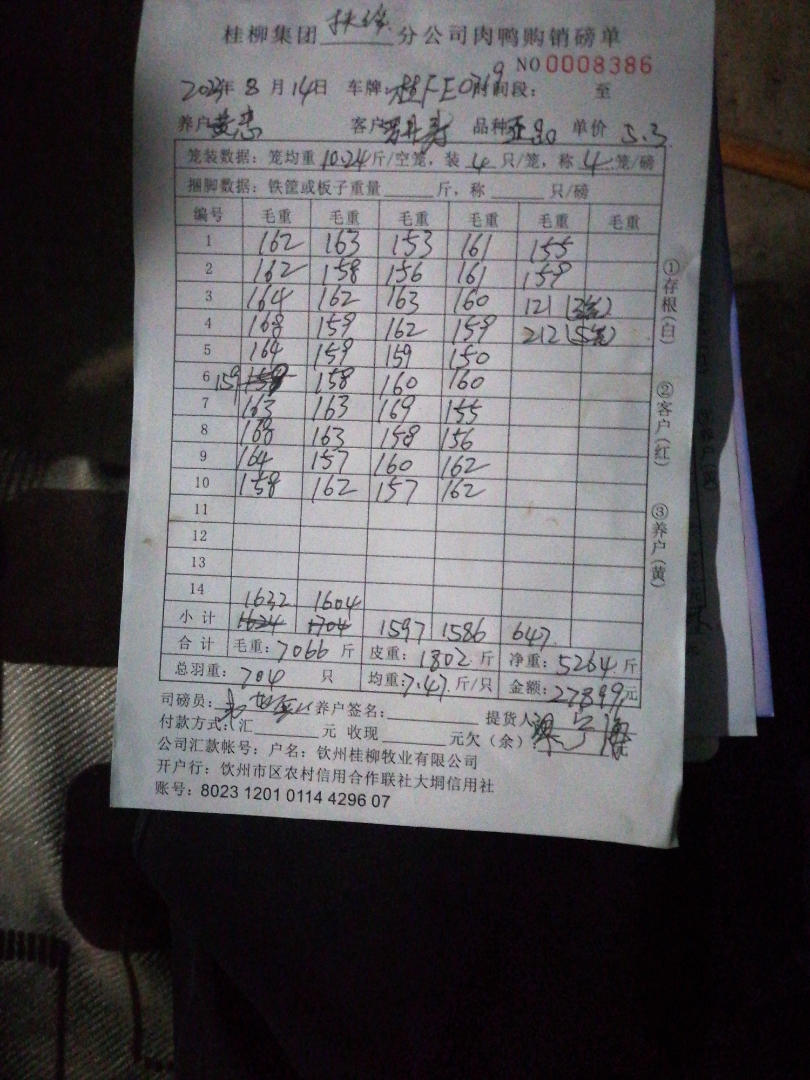 桂柳集团 扶绥 分公司肉鸭购销磅单
NO 0008386
2023年 8 月 14日 车牌: 桂FE0719 时间段: 至
养户 黄忠 客户 品种 单价 5.3
笼装数据: 笼均重 10.24 斤/空笼, 装 4 只/笼, 称 4 笼/磅
捆脚数据: 铁筐或板子重量 斤, 称 只/磅
编号 毛重 毛重 毛重 毛重 毛重 毛重
1 162 163 153 161 155
2 162 158 156 161 159
3 164 162 163 160 121 (3笼)
4 168 159 162 159 212 (5笼)
5 164 159 159 150
6 159 158 160 160
7 163 163 169 155
8 168 163 158 156
9 164 157 160 162
10 158 162 157 162
11
12
13
14
1632 1604
小计 1624 1704 1597 1586 647
合计 毛重: 7066 斤 皮重: 1802 斤 净重: 5264 斤
总羽重: 704 只 均重: 7.47 斤/只 金额: 27899 元
司磅员: 养户签名: 提货人
付款方式: 汇 元 收现 元欠(余)
公司汇款帐号: 户名: 钦州桂柳牧业有限公司
开户行: 钦州市区农村信用合作联社大垌信用社
账号: 8023 1201 0114 4296 07
①存根(白)
②客户(红)
③养户(黄)